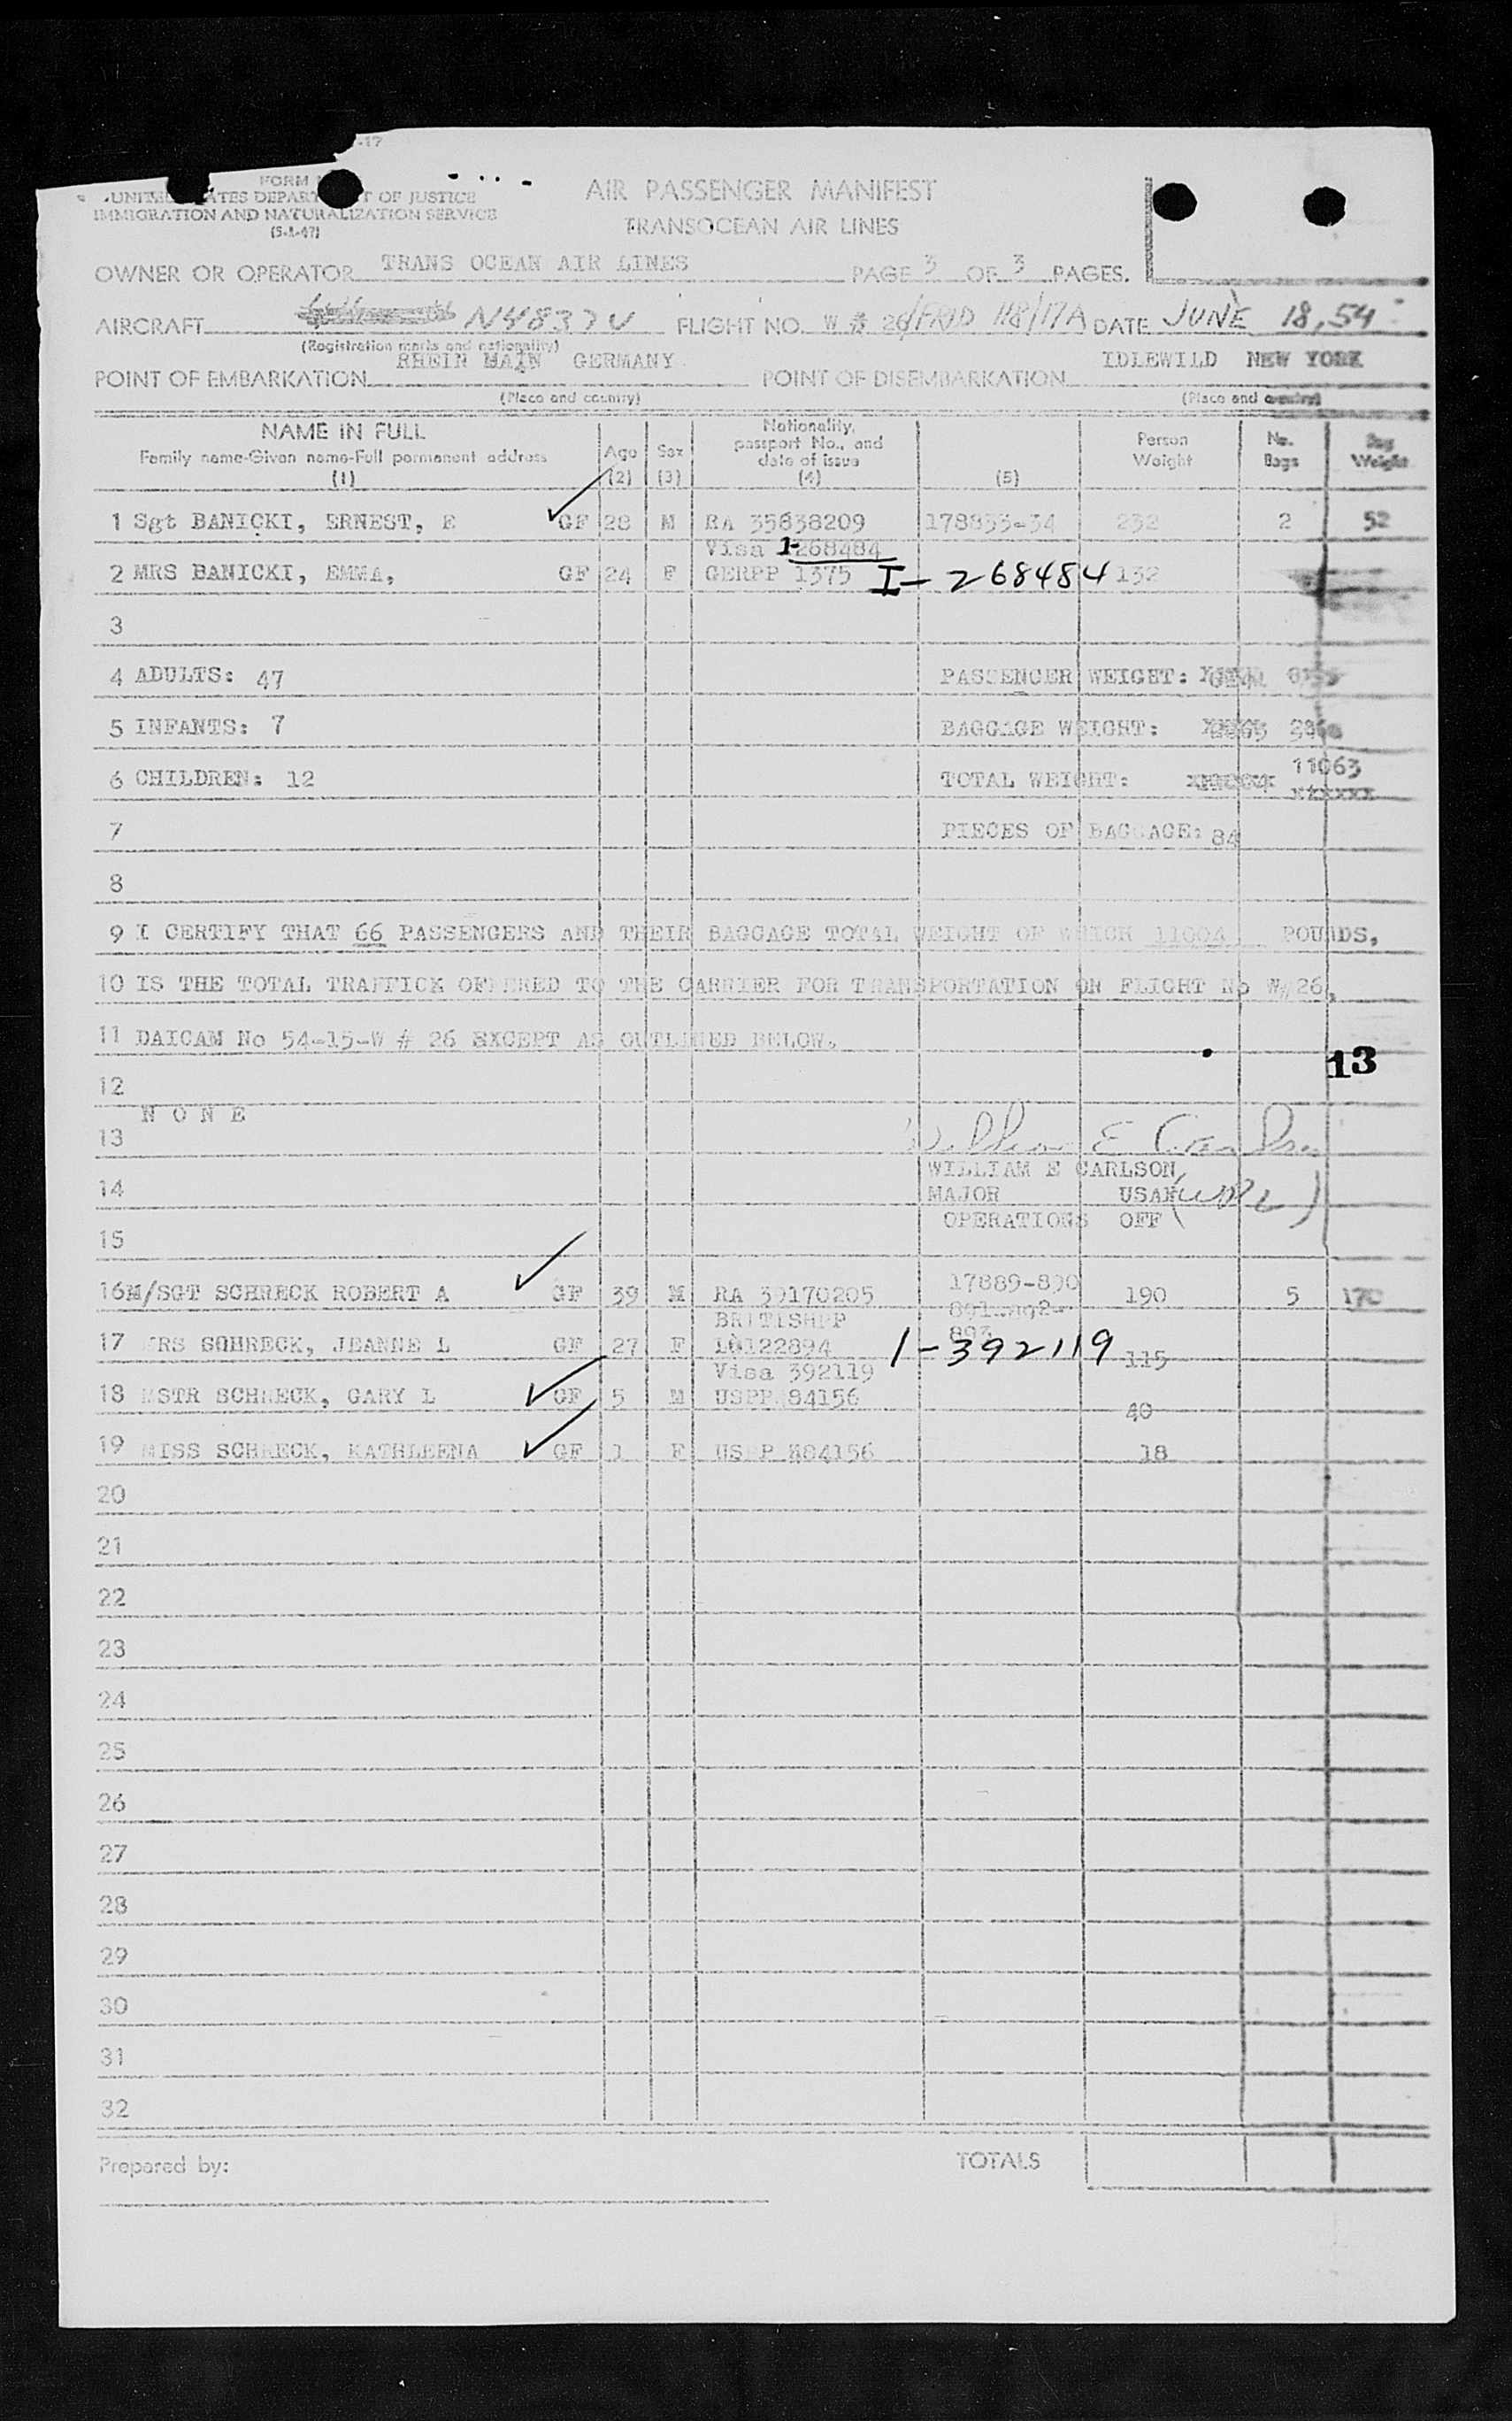 -17
FORM
UNITED STATES DEPARTMENT OF JUSTICE
IMMIGRATION AND NATURALIZATION SERVICE
(5-1-47)
AIR PASSENGER MANIFEST
TRANSOCEAN AIR LINES
OWNER OR OPERATOR TRANS OCEAN AIR LINES PAGE 3 OF 3 PAGES.
AIRCRAFT N4837U FLIGHT NO. W # 26/FRID 118/17A DATE JUNE 18, 54
(Registration marks and nationality)
POINT OF EMBARKATION RHEIN MAIN GERMANY POINT OF DISEMBARKATION IDLEWILD NEW YORK
(Place and country) (Place and country)
NAME IN FULL
Family name-Given name-Full permanent address
(1)
Age
(2)
Sex
(3)
Nationality,
passport No., and
date of issue
(4)
(5)
Person
Weight
No.
Bags
Bag
Weight
1 Sgt BANICKI, ERNEST, E GF 28 M RA 35838209 178833-34 232 2 52
Visa 1-268484
2 MRS BANICKI, EMMA, GF 24 F GERPP 1375 I-268484 132
3
4 ADULTS: 47 PASSENGER WEIGHT:
5 INFANTS: 7 BAGGAGE WEIGHT:
6 CHILDREN: 12 TOTAL WEIGHT: 11063
xxxxxx
7 PIECES OF BAGGAGE: 84
8
9 I CERTIFY THAT 66 PASSENGERS AND THEIR BAGGAGE TOTAL WEIGHT OF WHICH 11004 POUNDS,
10 IS THE TOTAL TRAFFICK OFFERED TO THE CARRIER FOR TRANSPORTATION ON FLIGHT No W#26,
11 DAICAM No 54-15-W # 26 EXCEPT AS OUTLINED BELOW.
13
12
N O N E
13 William E Carlson
WILLIAM E CARLSON
14 MAJOR USAF
OPERATIONS OFF
15
16 M/SGT SCHRECK ROBERT A GF 39 M RA 39170205 17889-890 190 5 170
BRITISHPP 891
17 MRS SCHRECK, JEANNE L GF 27 F L0122894 893 1-392119 115
Visa 392119
18 MSTR SCHRECK, GARY L GF 5 M USPP 84156 40
19 MISS SCHRECK, KATHLEENA GF 1 F USPP 384156 18
20
21
22
23
24
25
26
27
28
29
30
31
32
Prepared by: TOTALS